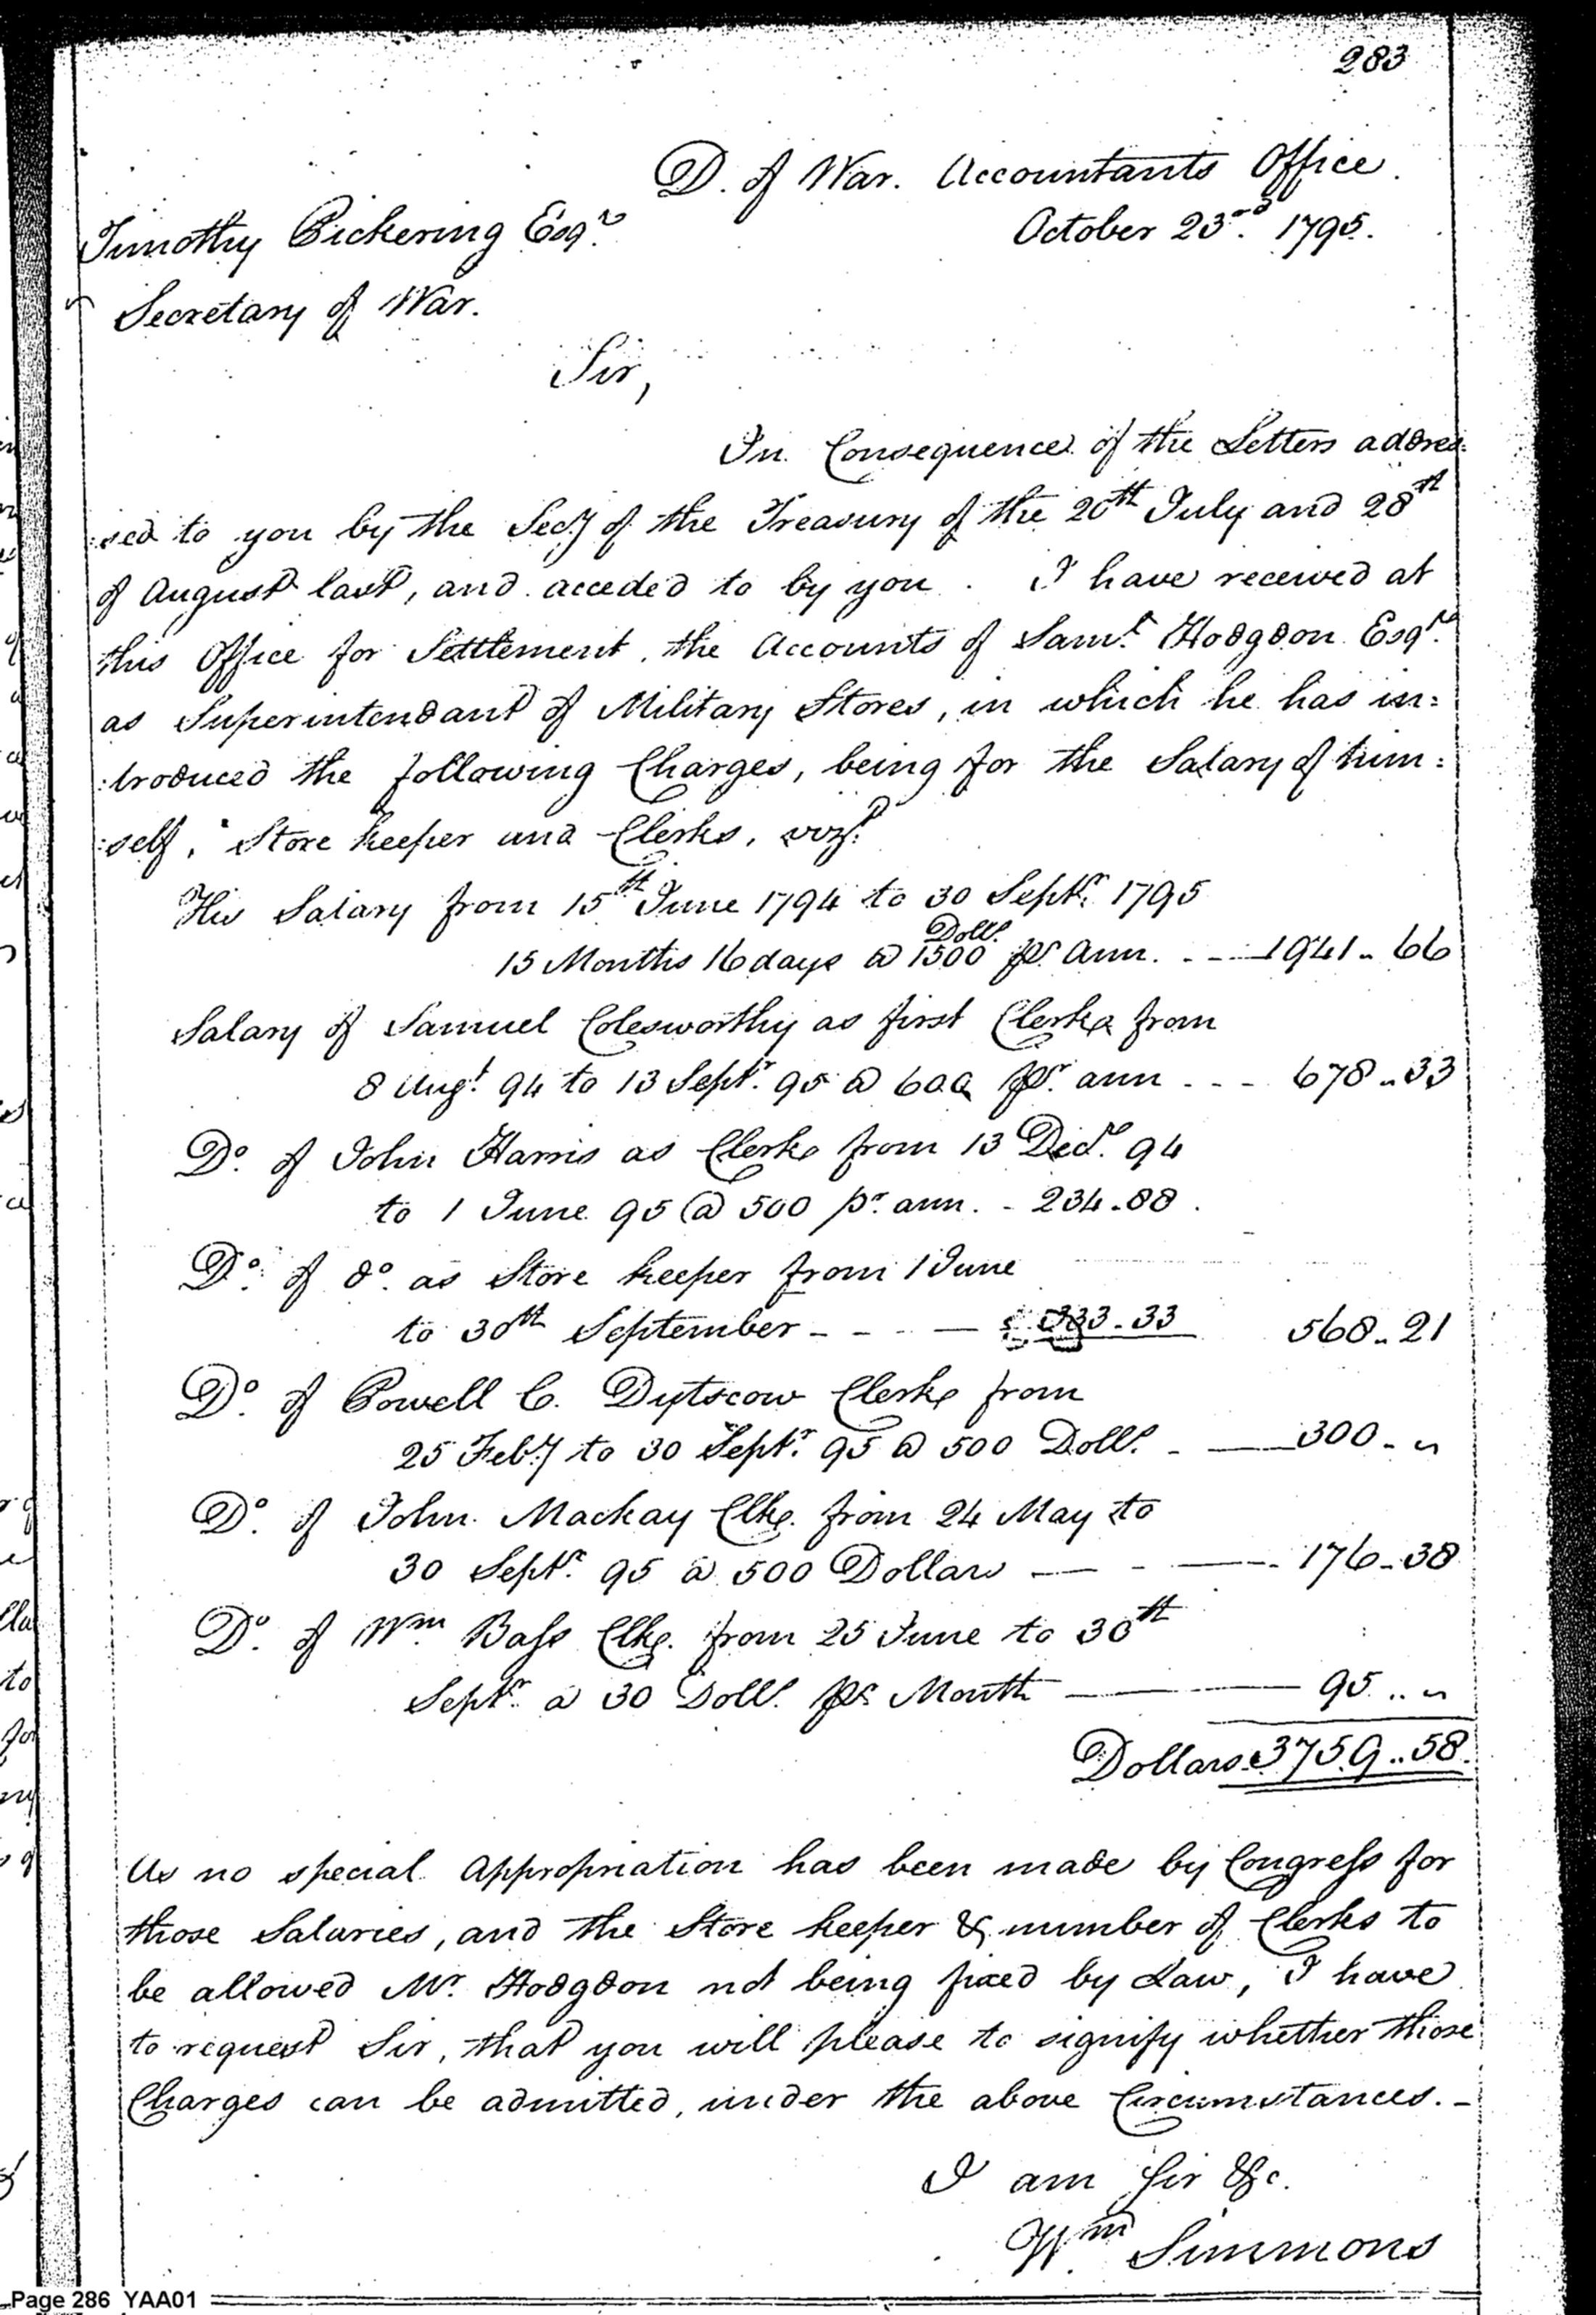 283
D. of War. Accountants Office.
October 23rd. 1795.
Timothy Pickering Esqr.
Secretary of War.
Sir,
In Consequence of the Letters addres:
:sed to you by the Secy of the Treasury of the 20th July and 28th
of August last, and acceded to by you. I have received at
this Office for Settlement, the Accounts of Saml. Hodgdon Esqr.
as Superintendant of Military Stores, in which he has in:
:troduced the following Charges, being for the Salary of him:
:self, Store keeper and Clerks, vizt.
His Salary from 15th June 1794 to 30 Septr. 1795
15 Months 16 days @ 1500 Dolls. pr. Ann. - - - 1941 .. 66
Salary of Samuel Colesworthy as first Clerke from
8 Augt. 94 to 13 Septr. 95 @ 600 pr. ann - - - 678 .. 33
Do. of John Harris as Clerke from 13 Decr. 94
to 1 June 95 @ 500 pr. ann. - 234 . 88.
Do. of do. as Store keeper from 1 June
to 30th September - - - - 333 - 33 568 .. 21
Do. of Powell C. Dytscow Clerke from
25 Feby to 30 Septr. 95 @ 500 Dolls. - 300 - "
Do. of John Mackay Clke. from 24 May to
30 Septr. 95 @ 500 Dollars - - - 176 - 38
Do. of Wm Bass Clke. from 25 June to 30th
Septr. @ 30 Dolls. pr. Month - 95 .. "
Dollars 3759 .. 58.
As no special Appropriation has been made by Congress for
those Salaries, and the Store keeper & number of Clerks to
be allowed Mr. Hodgdon not being fixed by Law, I have
to request Sir, that you will please to signify whether those
Charges can be admitted, under the above Circumstances. -
I am Sir &c.
Wm. Simmons
Page 286 YAA01